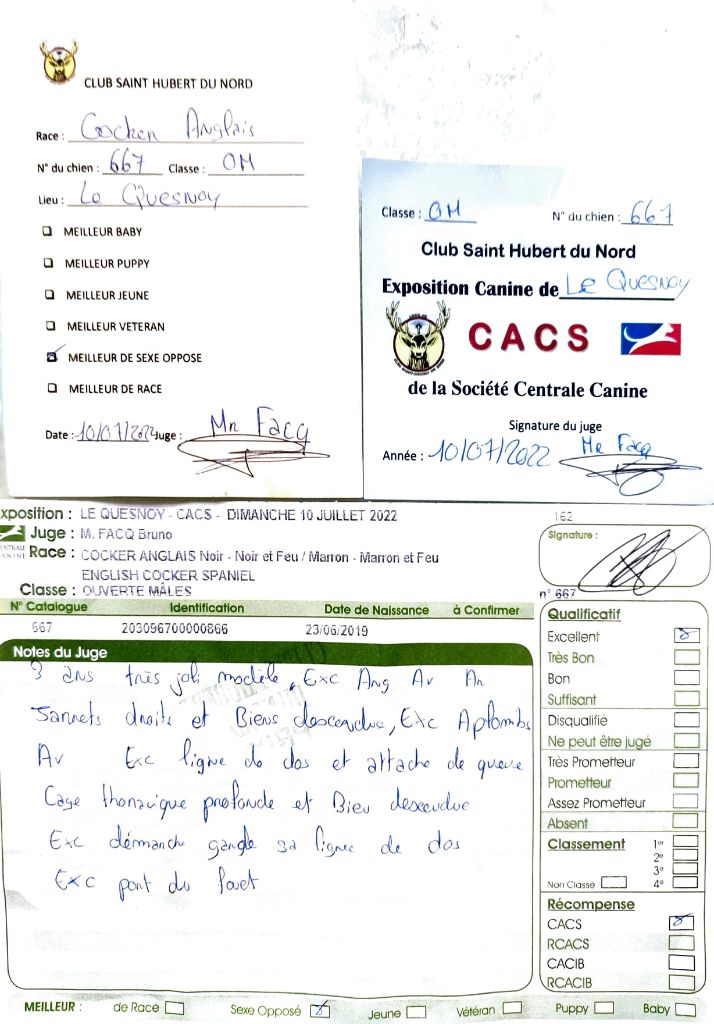 CLUB SAINT HUBERT DU NORD
Race : Cocker Anglais
N° du chien : 667 Classe : OM
Lieu : Le Quesnoy
MEILLEUR BABY
MEILLEUR PUPPY
MEILLEUR JEUNE
MEILLEUR VETERAN
MEILLEUR DE SEXE OPPOSE
MEILLEUR DE RACE
Date : 10/07/2022 Juge : Mr Facq
Classe : OM N° du chien : 667
Club Saint Hubert du Nord
Exposition Canine de Le Quesnoy
CACS
de la Société Centrale Canine
Signature du juge
Année : 10/07/2022 Mr Facq
xposition : LE QUESNOY - CACS - DIMANCHE 10 JUILLET 2022
162
Juge : M. FACQ Bruno
Signature :
CENTRALE CANINE
Race : COCKER ANGLAIS Noir - Noir et Feu / Marron - Marron et Feu
ENGLISH COCKER SPANIEL
Classe : OUVERTE MÂLES
n° 667
N° Catalogue Identification Date de Naissance à Confirmer
667 203096700000866 23/06/2019
Notes du Juge
3 ans très joli modèle, Exc Ang Av Ar
Jarrets droits et Biens descendue, Exc Aplombs
Av Exc ligne de dos et attache de queue
Cage thoracique profonde et Bien descendue
Exc démarche garde sa ligne de dos
Exc port du fouet
Qualificatif
Excellent
Très Bon
Bon
Suffisant
Disqualifié
Ne peut être jugé
Très Prometteur
Prometteur
Assez Prometteur
Absent
Classement 1er
2e
3e
Non Classe 4e
Récompense
CACS
RCACS
CACIB
RCACIB
MEILLEUR : de Race Sexe Opposé Jeune Vétéran Puppy Baby